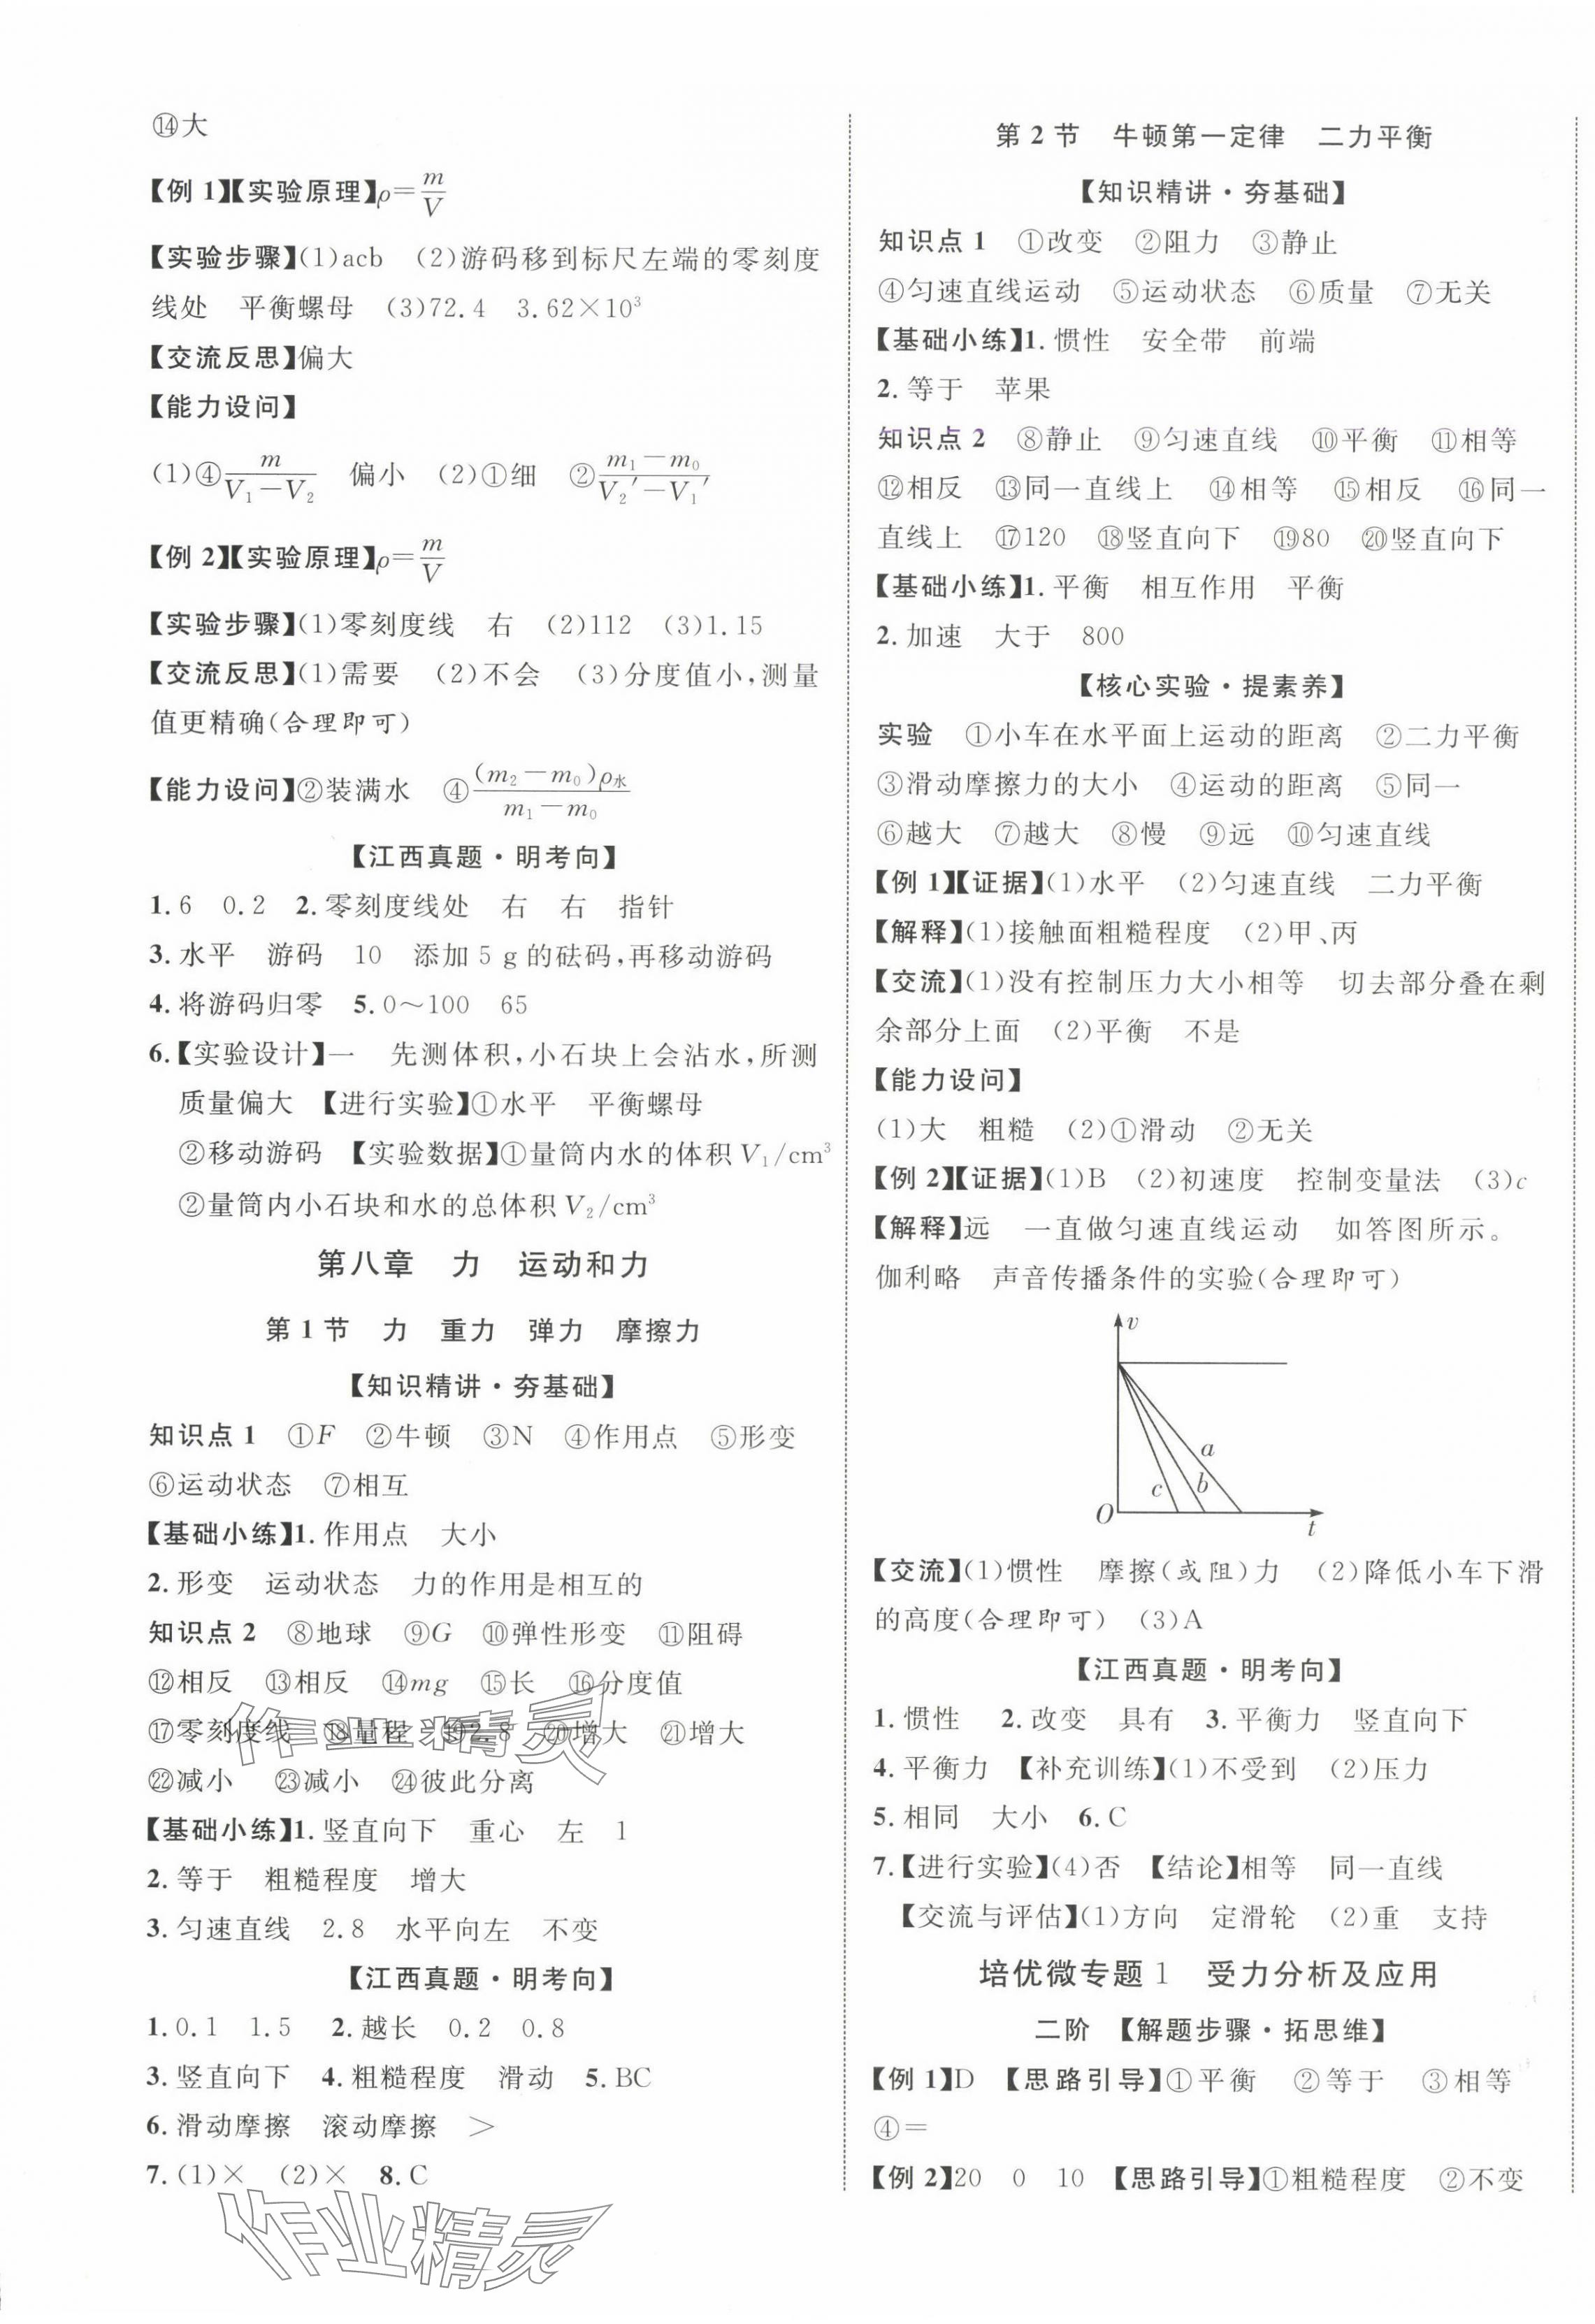 ⑭大
【例 1】【实验原理】ρ=m/V
【实验步骤】(1)acb (2)游码移到标尺左端的零刻度
线处 平衡螺母 (3)72.4 3.62×10³
【交流反思】偏大
【能力设问】
(1)④m/(V₁-V₂) 偏小 (2)①细 ②(m₁-m₀)/(V₂′-V₁′)
【例 2】【实验原理】ρ=m/V
【实验步骤】(1)零刻度线 右 (2)112 (3)1.15
【交流反思】(1)需要 (2)不会 (3)分度值小,测量
值更精确(合理即可)
【能力设问】②装满水 ④(m₂-m₀)ρ水/(m₁-m₀)
【江西真题·明考向】
1.6 0.2 2.零刻度线处 右 右 指针
3.水平 游码 10 添加 5 g 的砝码,再移动游码
4.将游码归零 5.0~100 65
6.【实验设计】一 先测体积,小石块上会沾水,所测
质量偏大 【进行实验】①水平 平衡螺母
②移动游码 【实验数据】①量筒内水的体积 V₁/cm³
②量筒内小石块和水的总体积 V₂/cm³
第八章 力 运动和力
第 1 节 力 重力 弹力 摩擦力
【知识精讲·夯基础】
知识点 1 ①F ②牛顿 ③N ④作用点 ⑤形变
⑥运动状态 ⑦相互
【基础小练】1.作用点 大小
2.形变 运动状态 力的作用是相互的
知识点 2 ⑧地球 ⑨G ⑩弹性形变 ⑪阻碍
⑫相反 ⑬相反 ⑭mg ⑮长 ⑯分度值
⑰零刻度线 ⑱量程 ⑲2.8 ⑳增大 ㉑增大
㉒减小 ㉓减小 ㉔彼此分离
【基础小练】1.竖直向下 重心 左 1
2.等于 粗糙程度 增大
3.匀速直线 2.8 水平向左 不变
【江西真题·明考向】
1.0.1 1.5 2.越长 0.2 0.8
3.竖直向下 4.粗糙程度 滑动 5.BC
6.滑动摩擦 滚动摩擦 >
7.(1)× (2)× 8.C
作业精灵
作业精灵
第 2 节 牛顿第一定律 二力平衡
【知识精讲·夯基础】
知识点 1 ①改变 ②阻力 ③静止
④匀速直线运动 ⑤运动状态 ⑥质量 ⑦无关
【基础小练】1.惯性 安全带 前端
2.等于 苹果
知识点 2 ⑧静止 ⑨匀速直线 ⑩平衡 ⑪相等
⑫相反 ⑬同一直线上 ⑭相等 ⑮相反 ⑯同一
直线上 ⑰120 ⑱竖直向下 ⑲80 ⑳竖直向下
【基础小练】1.平衡 相互作用 平衡
2.加速 大于 800
【核心实验·提素养】
实验 ①小车在水平面上运动的距离 ②二力平衡
③滑动摩擦力的大小 ④运动的距离 ⑤同一
⑥越大 ⑦越大 ⑧慢 ⑨远 ⑩匀速直线
【例 1】【证据】(1)水平 (2)匀速直线 二力平衡
【解释】(1)接触面粗糙程度 (2)甲、丙
【交流】(1)没有控制压力大小相等 切去部分叠在剩
余部分上面 (2)平衡 不是
【能力设问】
(1)大 粗糙 (2)①滑动 ②无关
【例 2】【证据】(1)B (2)初速度 控制变量法 (3)c
【解释】远 一直做匀速直线运动 如答图所示。
伽利略 声音传播条件的实验(合理即可)
v
a
c b
O t
【交流】(1)惯性 摩擦(或阻)力 (2)降低小车下滑
的高度(合理即可) (3)A
【江西真题·明考向】
1.惯性 2.改变 具有 3.平衡力 竖直向下
4.平衡力 【补充训练】(1)不受到 (2)压力
5.相同 大小 6.C
7.【进行实验】(4)否 【结论】相等 同一直线
【交流与评估】(1)方向 定滑轮 (2)重 支持
培优微专题 1 受力分析及应用
二阶 【解题步骤·拓思维】
【例 1】D 【思路引导】①平衡 ②等于 ③相等
④=
【例 2】20 0 10 【思路引导】①粗糙程度 ②不变